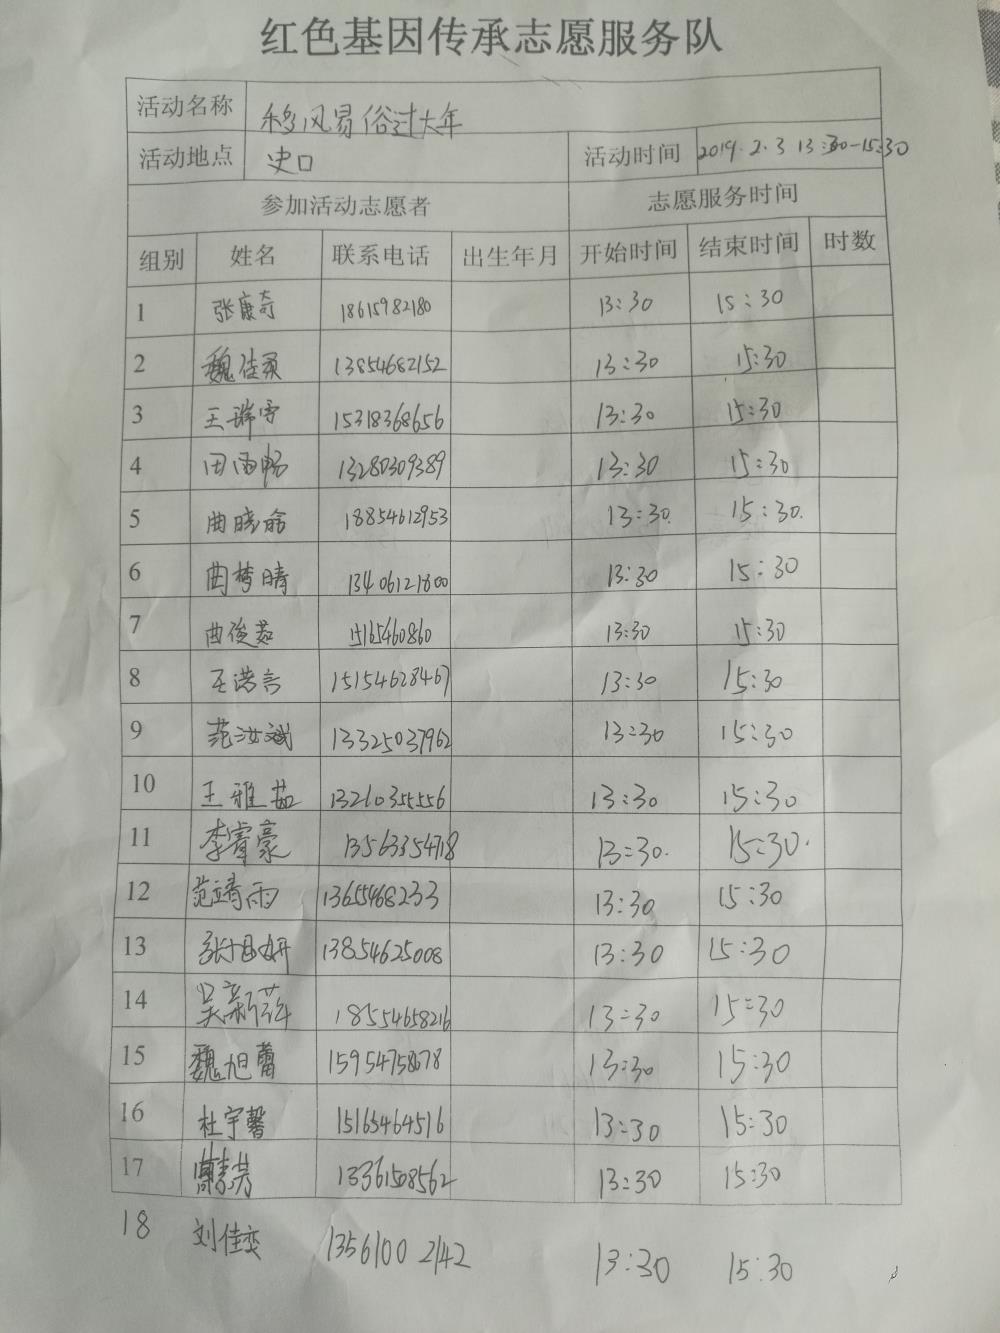 红色基因传承志愿服务队
活动名称 移风易俗过大年
活动地点 史口 活动时间 2019.2.3 13:30-15:30
参加活动志愿者 志愿服务时间
组别 姓名 联系电话 出生年月 开始时间 结束时间 时数
1 张康奇 18615982180 13:30 15:30
2 魏佳 13854682152 13:30 15:30
3 王瑞雪 15318368656 13:30 15:30
4 田雨畅 13280309389 13:30 15:30
5 曲晓 18854612953 13:30. 15:30.
6 曲梦晴 13406121800 13:30 15:30
7 曲俊茹 15165460860 13:30 15:30
8 王诺言 15154628467 13:30 15:30
9 范汝斌 13325037962 13:30 15:30
10 王雅茹 13210355556 13:30 15:30
11 李睿豪 13563354718 13:30. 15:30.
12 范靖雨 13655468233 13:30 15:30
13 张旭妍 13854625008 13:30 15:30
14 吴新萍 18554658216 13:30 15:30
15 魏旭蕾 15954758678 13:30 15:30
16 杜宇馨 15165464516 13:30 15:30
17 13361508562 13:30 15:30
18 刘佳奕 13561002142 13:30 15:30